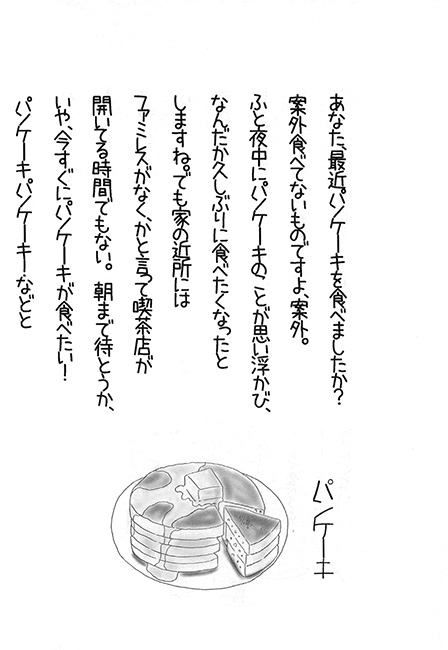 あなた、最近パンケーキを食べましたか?
案外食べてないものですよ、案外。
ふと夜中にパンケーキのことが思い浮かび、
なんだか久しぶりに食べたくなったと
しますね。でも家の近所には
ファミレスがなく、かと言って喫茶店が
開いてる時間でもない。朝まで待とうか、
いや、今すぐにパンケーキが食べたい!
パンケーキパンケーキーなどと
パンケーキ